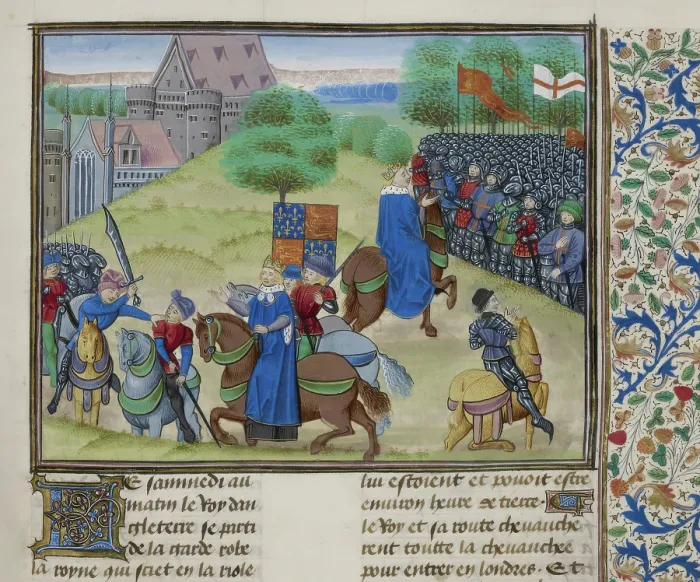 Le sammedi au
matin le Roy dan
gleterre se parti
de la garde robe
la royne qui sciet en la riole
lui estoient et pouoit estre
environ heure de tierce.
le Roy et sa route chevauche
rent toutte la chevauchee
pour entrer en londres. Et